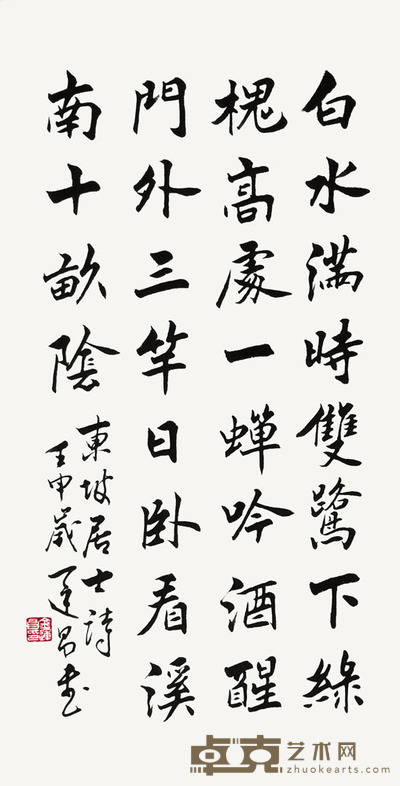 白水滿時雙鷺下綠
槐高處一蟬吟酒醒
門外三竿日卧看溪
南十畝陰
東坡居士詩
壬申歲運昌书
卓克艺术网
zhuokearts.com